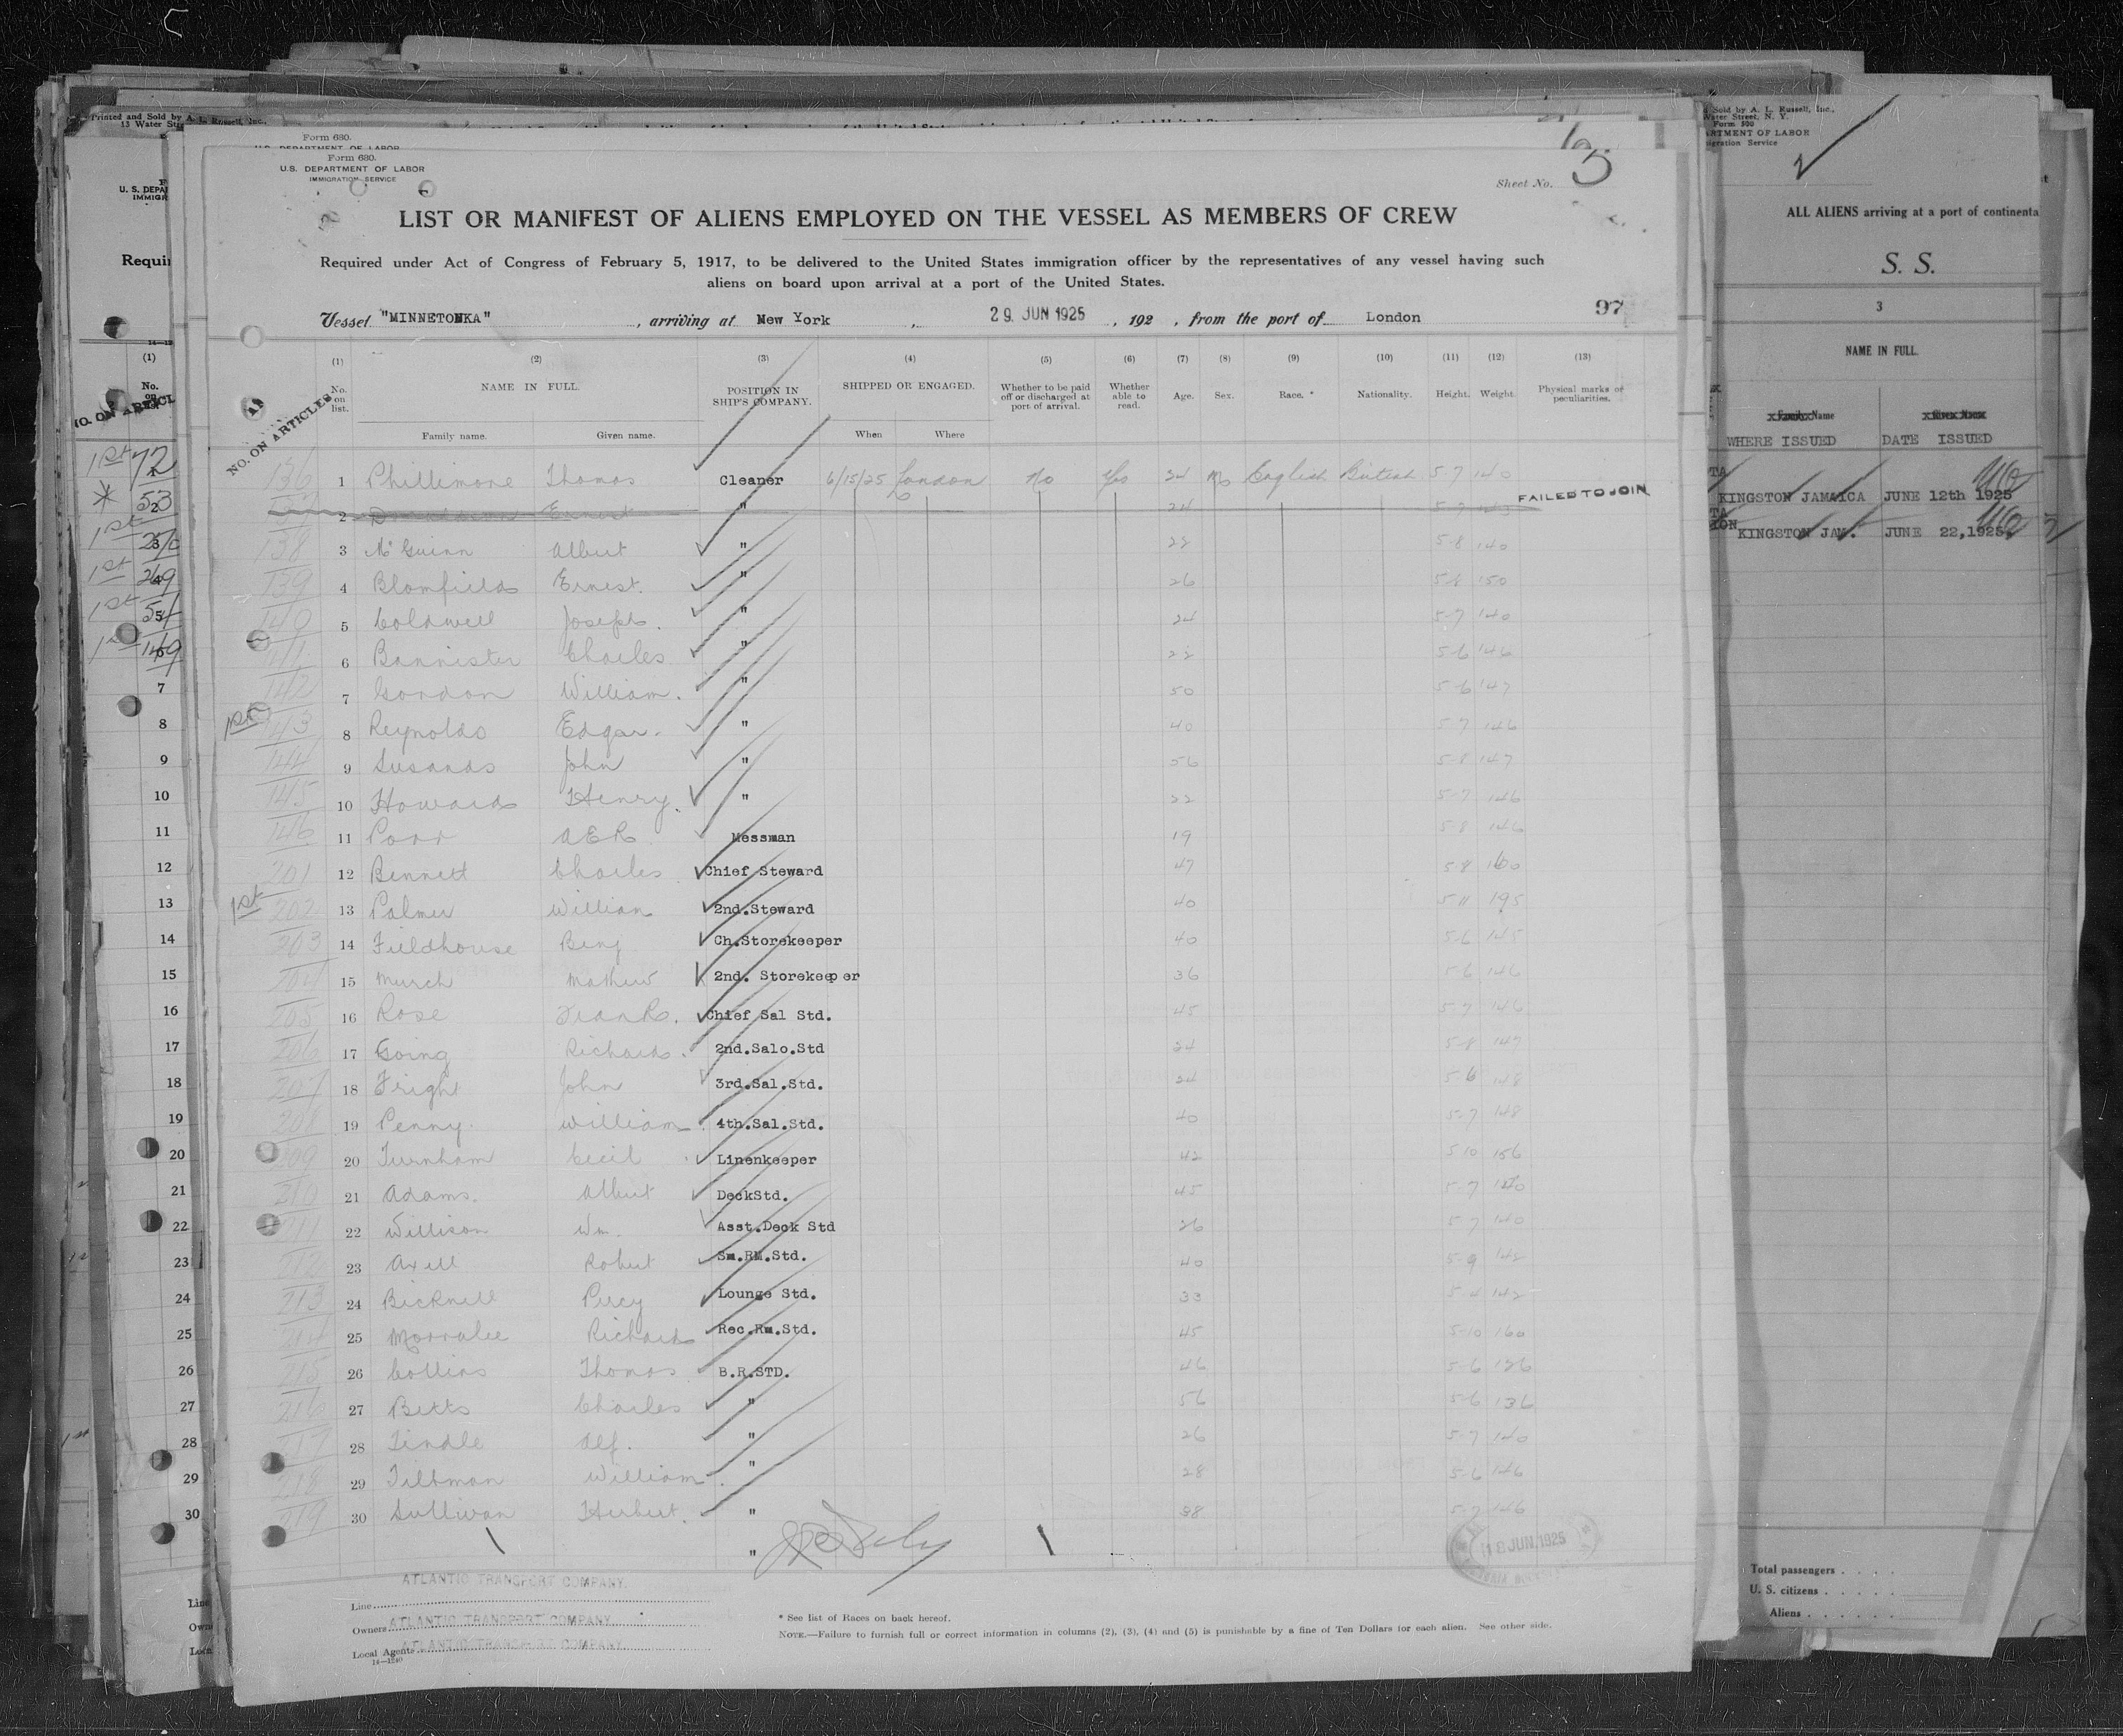 Form 680.
U.S. DEPARTMENT OF LABOR
IMMIGRATION SERVICE
Sheet No. 5
LIST OR MANIFEST OF ALIENS EMPLOYED ON THE VESSEL AS MEMBERS OF CREW
Required under Act of Congress of February 5, 1917, to be delivered to the United States immigration officer by the representatives of any vessel having such
aliens on board upon arrival at a port of the United States.
Vessel "MINNETONKA", arriving at New York, 29 JUN 1925, 192 , from the port of London
97
(1) (2) (3) (4) (5) (6) (7) (8) (9) (10) (11) (12) (13)
NO. ON ARTICLES No. on list. NAME IN FULL. POSITION IN SHIP'S COMPANY. SHIPPED OR ENGAGED. Whether to be paid off or discharged at port of arrival. Whether able to read. Age. Sex. Race. * Nationality. Height. Weight. Physical marks or peculiarities.
Family name. Given name. When Where
136 1 Phillimore Thomas Cleaner 6/15/25 London No Yes 24 M English British 5-7 140
2 Ernest " 24 FAILED TO JOIN
138 3 McGuinn Albert " 22 5-8 140
139 4 Blomfield Ernest. " 26 5-8 150
140 5 Coldwell Joseph. " 24 5-7 140
141 6 Bannister Charles " 22 5-6 146
142 7 Gordon William. " 50 5-6 147
1st 143 8 Reynolds Edgar. " 40 5-7 146
144 9 Susands John " 56 5-8 147
145 10 Howard Henry. " 22 5-7 146
146 11 Poor A E R Messman 19 5-8 146
201 12 Bennett Charles Chief Steward 47 5-8 160
1st 202 13 Palmer William 2nd.Steward 40 5-11 195
203 14 Fieldhouse Benj Ch.Storekeeper 40 5-6 145
204 15 Murch Mathew 2nd. Storekeeper 36 5-6 146
205 16 Rose Frank. Chief Sal Std. 45 5-7 146
206 17 Going Richard. 2nd.Salo.Std 34 5-8 147
207 18 Fright John 3rd.Sal.Std. 24 5-6 148
208 19 Penny. William 4th.Sal.Std. 40 5-7 148
209 20 Turnham Cecil Linenkeeper 42 5-10 156
210 21 Adams. Albert DeckStd. 45 5-7 140
211 22 Willison Wm. Asst.Deck Std 26 5-7 140
212 23 Axell Robert Sm.RM.Std. 40 5-9 142
213 24 Bicknell Percy Lounge Std. 33 5-4 142
214 25 Morralee Richard Rec.Rm.Std. 45 5-10 160
215 26 Collins Thomas B.R.STD. 46 5-6 136
216 27 Betts Charles " 56 5-6 136
217 28 Tindle Alf. " 26 5-7 140
218 29 Tiltman William " 28 5-6 146
219 30 Sullivan Herbert. " 38 5-7 146
"
18 JUN 1925
Line ATLANTIC TRANSPORT COMPANY.
Owners ATLANTIC TRANSPORT COMPANY
Local Agents ATLANTIC TRANSPORT COMPANY
14—1240
* See list of Races on back hereof.
NOTE.—Failure to furnish full or correct information in columns (2), (3), (4) and (5) is punishable by a fine of Ten Dollars for each alien. See other side.
Printed and Sold by A. L. Russell, Inc.,
13 Water Str
Form 680.
U.S. DEPARTMENT OF LABOR
U. S. DEPA
IMMIGR
Requir
(1)
No. on
1st 72
* 53
1st 270
1st 269
1st 54
1st 149
7
8
9
10
11
12
13
14
15
16
17
18
19
20
21
22
23
24
25
26
27
28
29
30
Line
Own
Loca
d Sold by A. L. Russell, Inc.,
Water Street, N. Y.
Form 500
ARTMENT OF LABOR
igration Service
2
ALL ALIENS arriving at a port of continenta
S. S.
3
NAME IN FULL.
Family Name Given Name
WHERE ISSUED DATE ISSUED
KINGSTON JAMAICA JUNE 12th 1925
KINGSTON JAM. JUNE 22,1925
Total passengers . . . .
U. S. citizens . . . . .
Aliens . . . . . .